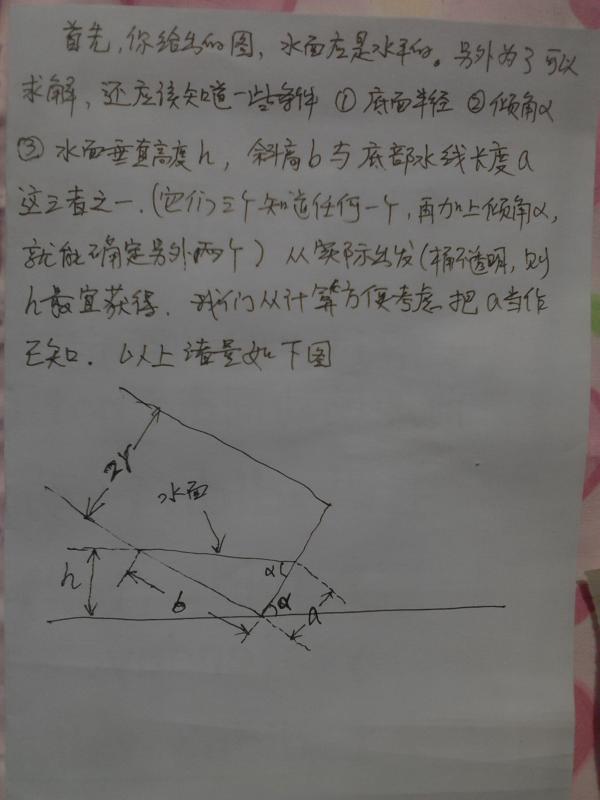 首先,你给出的图,水面应是水平的。另外为了可以
求解,还应该知道一些条件 ① 底面半径 ② 倾角α
③ 水面垂直高度h,斜高b与底部水线长度a
这三者之一.(它们三个知道任何一个,再加上倾角α,
就能确定另外两个)从实际出发(桶不透明,则
h最宜获得.我们从计算方便考虑把a当作
已知.以上诸量如下图
2r
水面
h
b
α
α
a